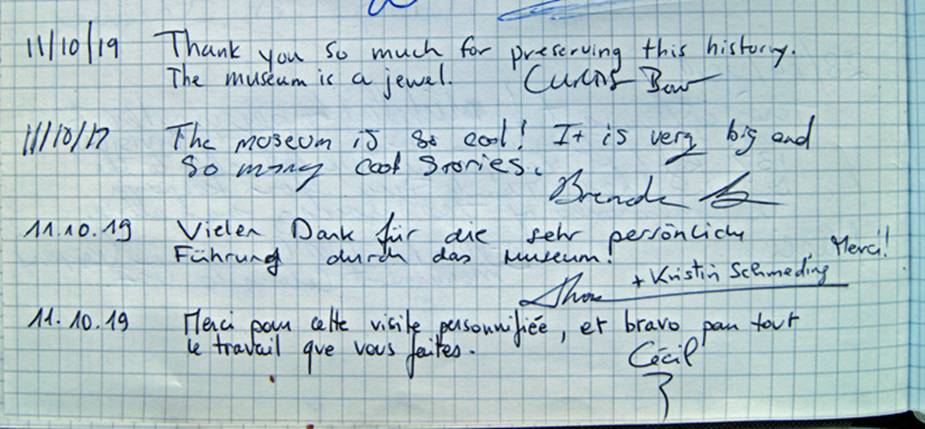 11/10/19 Thank you so much for preserving this history.
The museum is a jewel. Curtis
11/10/17 The museum is so cool! It is very big and
so many cool stories.
Brenda
11.10.19 Vielen Dank für die sehr persönliche
Führung durch das Museum! Merci!
+ Kristin Schmeding
11.10.19 Merci pour cette visite personnifiée, et bravo pour tout
le travail que vous faites.
Cécil